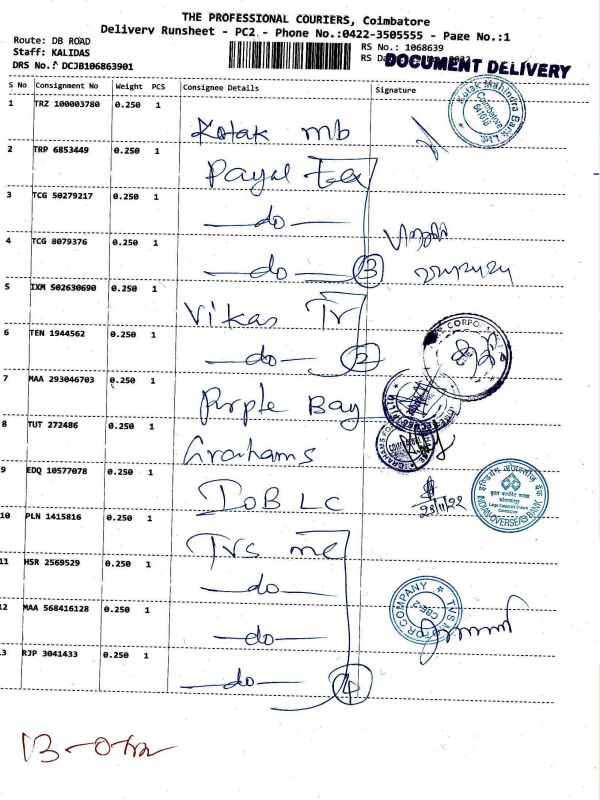 THE PROFESSIONAL COURIERS, Coimbatore
Delivery Runsheet - PC2 - Phone No.:0422-3505555 - Page No.:1
Route: DB ROAD
Staff: KALIDAS
DRS No.: DCJB106863901
RS No.: 1068639
RS Da
DOCUMENT DELIVERY
S No Consignment No Weight PCS Consignee Details Signature
1 TRZ 100003780 0.250 1 Kotak mb
Kotak Mahindra Bank Ltd
Coimbatore
641018
2 TRP 6853449 0.250 1 Payal Tex
3 TCG 50279217 0.250 1 —do—
4 TCG 8079376 0.250 1 —do— 3
5 IXM 502630690 0.250 1 Vikas Tr
6 TEN 1944562 0.250 1 —do— 2
7 MAA 293046703 0.250 1 Purple Bay
8 TUT 272486 0.250 1 Grahams
9 EDQ 10577078 0.250 1 IOB LC
23/11/22
इण्डियन ओवरसीज़ बैंक
INDIAN OVERSEAS BANK
10 PLN 1415816 0.250 1 TVS me
11 HSR 2569529 0.250 1 —do—
12 MAA 568416128 0.250 1 —do—
TVS MOTOR COMPANY
CBE-2
13 RJP 3041433 0.250 1 —do— 4